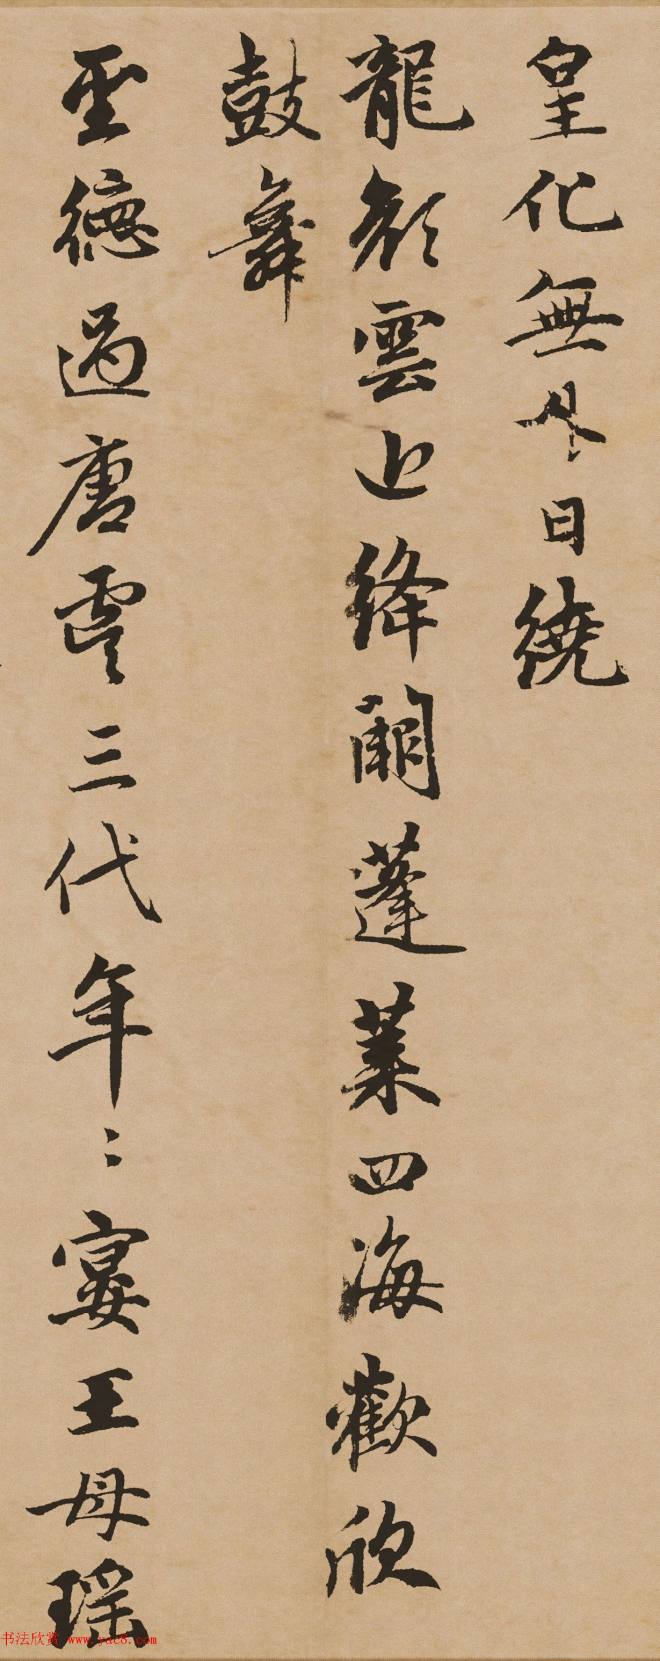 皇化無外日繞
龍顏雲近絳闕蓬萊四海歡欣
鼓舞
聖德過唐虞三代年〻宴王母瑤
书法欣赏 www.yac8.com